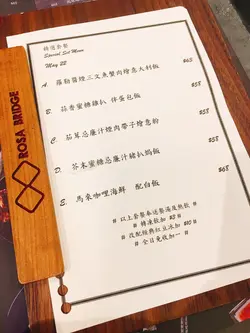 ROSA BRIDGE
精選套餐
Special Set Menu
May 22
A. 羅勒醬煙三文魚蟹肉燴意大利飯 $63
B. 蒜香蜜糖雞扒 伴蛋包飯 $58
C. 茄茸忌廉汁焗肉帶子燴意粉 $58
D. 芥末蜜糖忌廉汁豬扒焗飯 $58
E. 馬來咖哩海鮮 配白飯 $58
# 以上套餐奉送餐湯及熱飲 #
# 轉凍飲加 $3 #
# 改配經典紅豆冰加 $10 #
# 全日免收加一 #